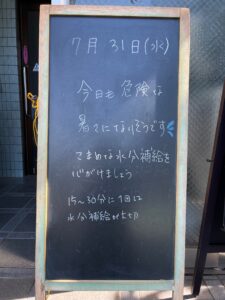 7月31日(水)
今日も危険な
暑さになりそうです
こまめな水分補給を
心がけましょう
15〜30分に1回は
水分補給が大切